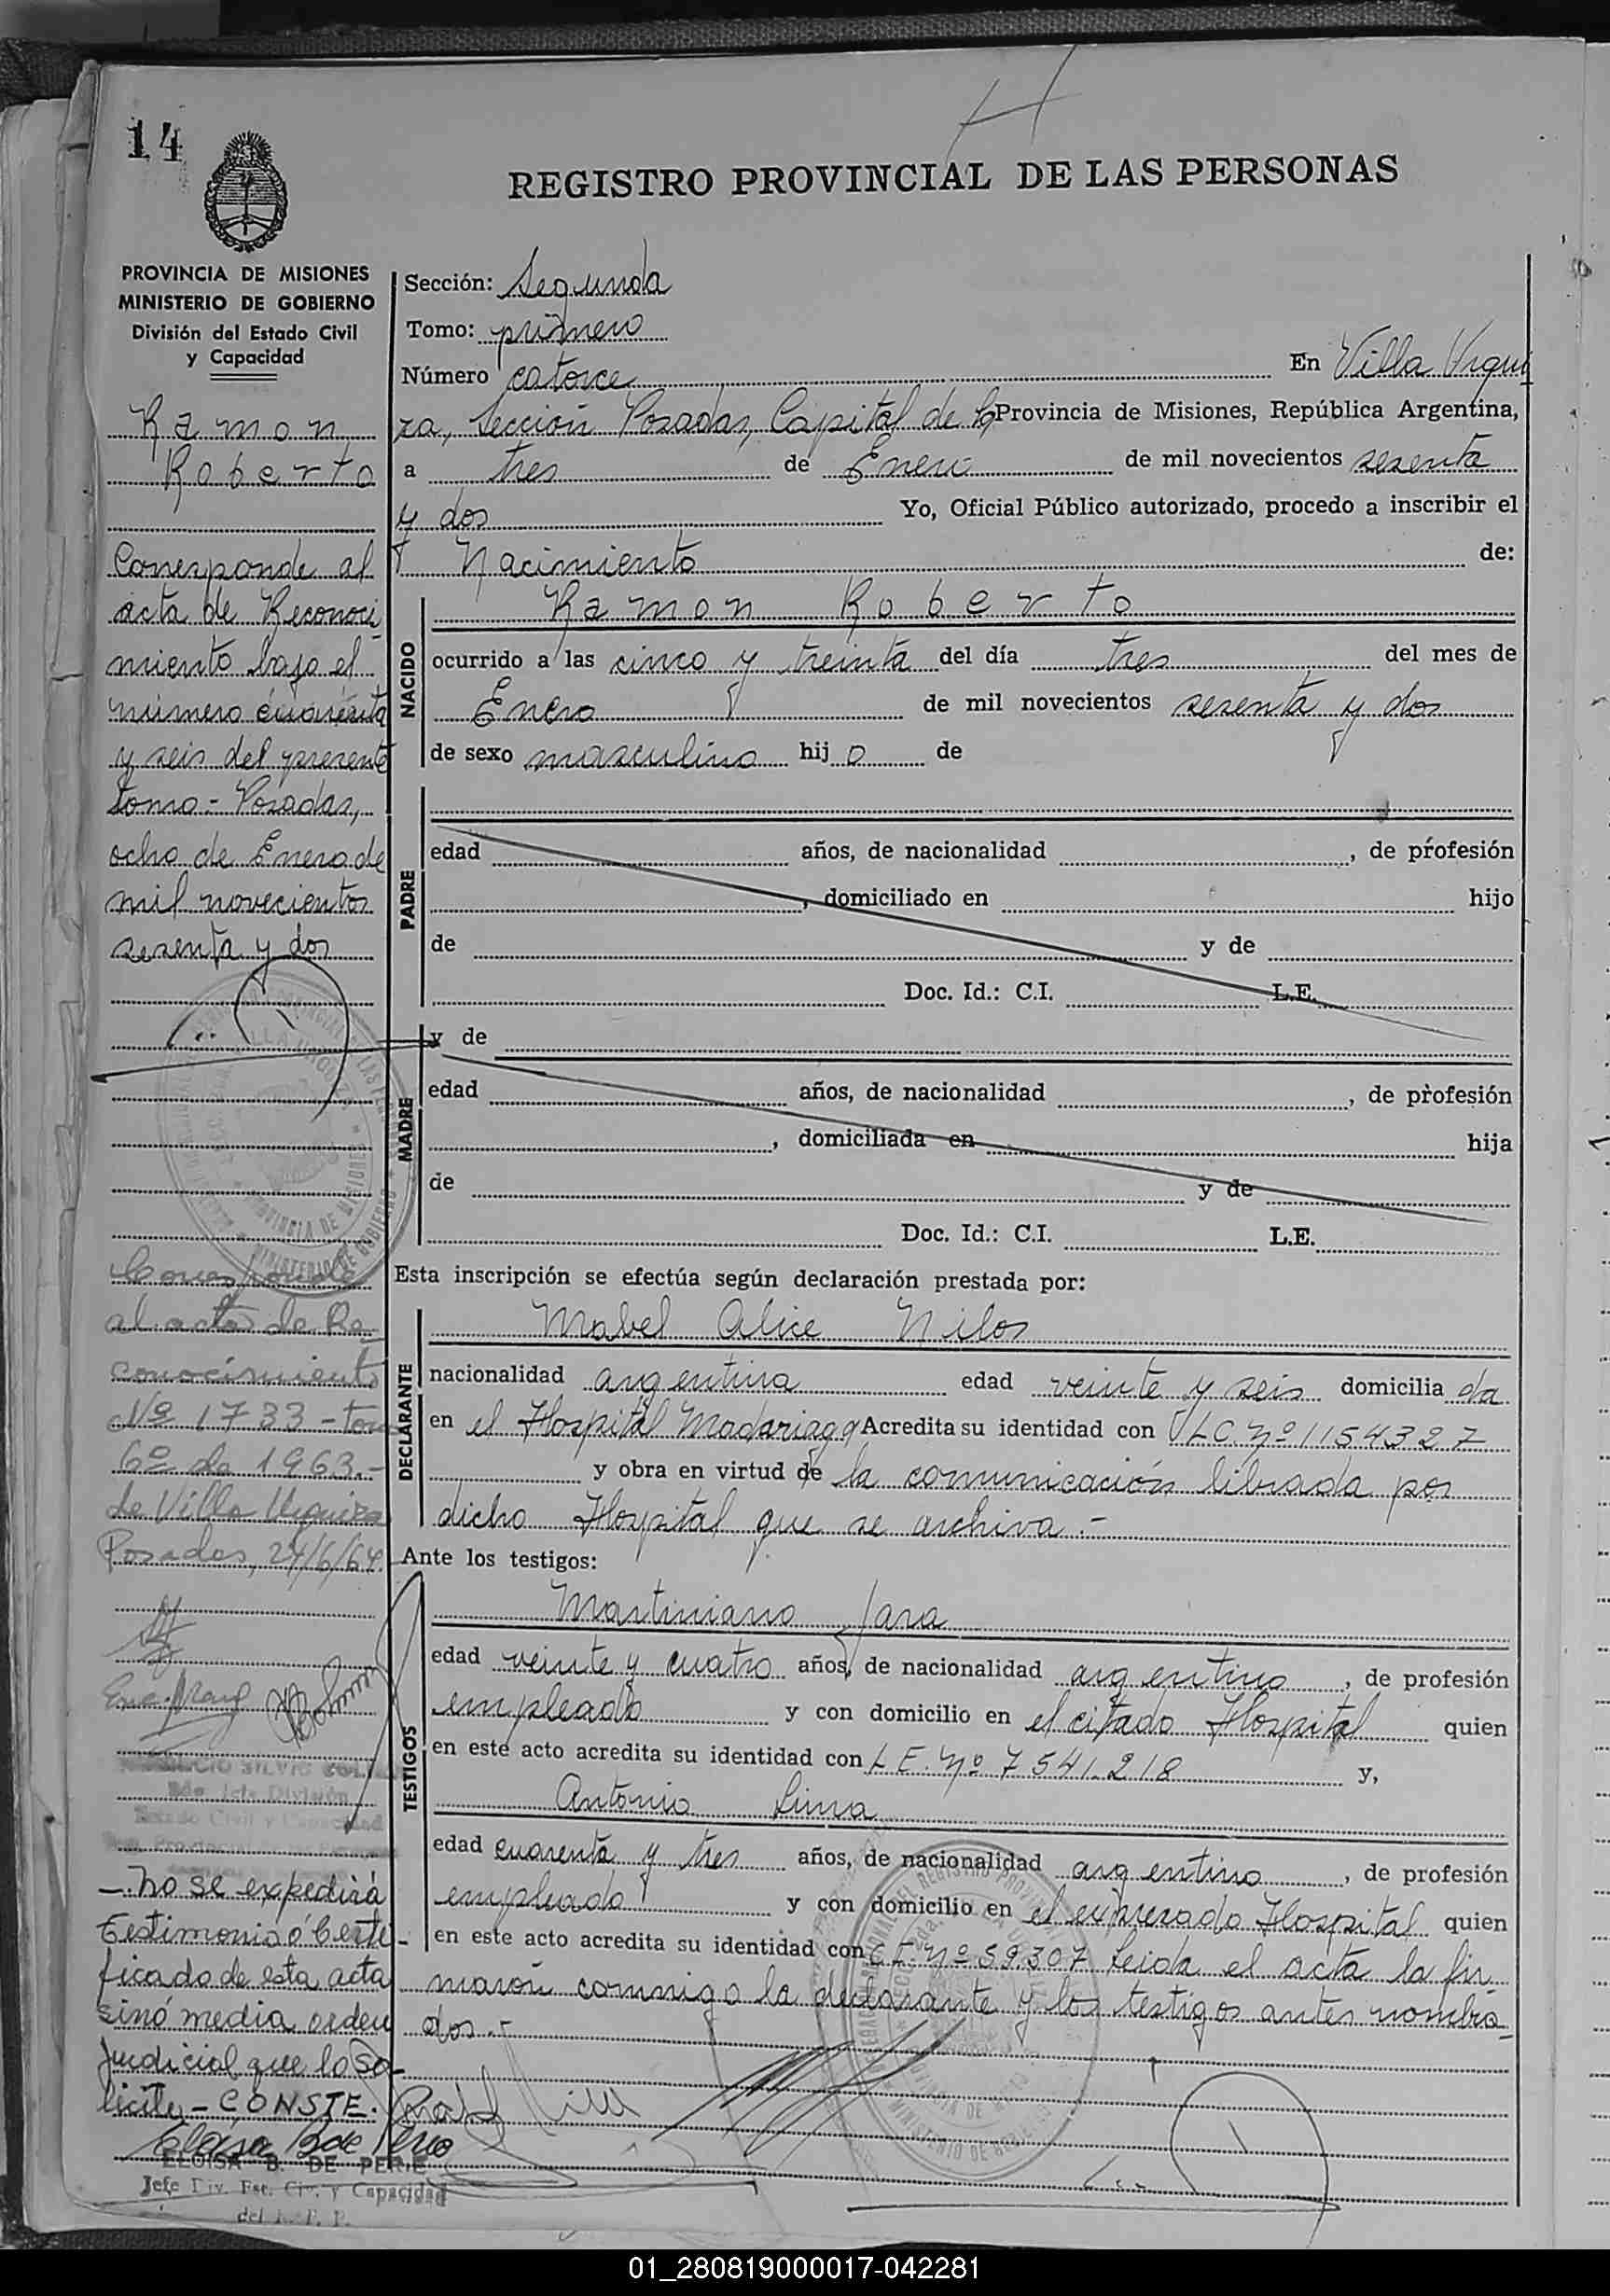 14
REGISTRO PROVINCIAL DE LAS PERSONAS
PROVINCIA DE MISIONES
MINISTERIO DE GOBIERNO
División del Estado Civil
y Capacidad
Ramon
Roberto
Corresponde al
acta de Reconoci
miento bajo el
número cuarenta
y seis del presente
tomo.- Posadas,
ocho de Enero de
mil novecientos
sesenta y dos
Corresponde
al acta de Re
conocimiento
Nº 1733 - tomo
6º de 1963.-
de Villa Urquiza
Posadas, 24/6/64.
Estado Civil y Capacidad
-. No se expedirá
Testimonio ó Certi-
ficado de esta acta
sinó media orden
Judicial que lo so-
licite - CONSTE.
ELOISA B. DE PERIE
Jefe Div. Est. Civ. y Capacidad
del R. P. P.
Sección: Segunda
Tomo: primero
Número catorce En Villa Urqui
za, Sección Posadas, Capital de la Provincia de Misiones, República Argentina,
a tres de Enero de mil novecientos sesenta
y dos Yo, Oficial Público autorizado, procedo a inscribir el
Nacimiento de:
NACIDO
Ramon Roberto
ocurrido a las cinco y treinta del día tres del mes de
Enero de mil novecientos sesenta y dos
de sexo masculino hijo de
PADRE
edad años, de nacionalidad , de profesión
, domiciliado en hijo
de y de
Doc. Id.: C.I. L.E.
MADRE
y de
edad años, de nacionalidad , de profesión
, domiciliada en hija
de y de
Doc. Id.: C.I. L.E.
Esta inscripción se efectúa según declaración prestada por:
DECLARANTE
Mabel Alice Nilos
nacionalidad argentina edad veinte y seis domicilia da
en el Hospital Madariaga Acredita su identidad con LC. Nº 1154327
y obra en virtud de la comunicación librada por
dicho Hospital que se archiva.-
Ante los testigos:
TESTIGOS
Martiniano Jara
edad veinte y cuatro años, de nacionalidad argentino , de profesión
empleado y con domicilio en el citado Hospital quien
en este acto acredita su identidad con L E. Nº 7541.218 y,
Antonio Lima
edad cuarenta y tres años, de nacionalidad argentino , de profesión
empleado y con domicilio en el expresado Hospital quien
en este acto acredita su identidad con C I. Nº 59.307 Leida el acta la fir
maron conmigo la declarante y los testigos antes nombra
dos.-
01_280819000017-042281